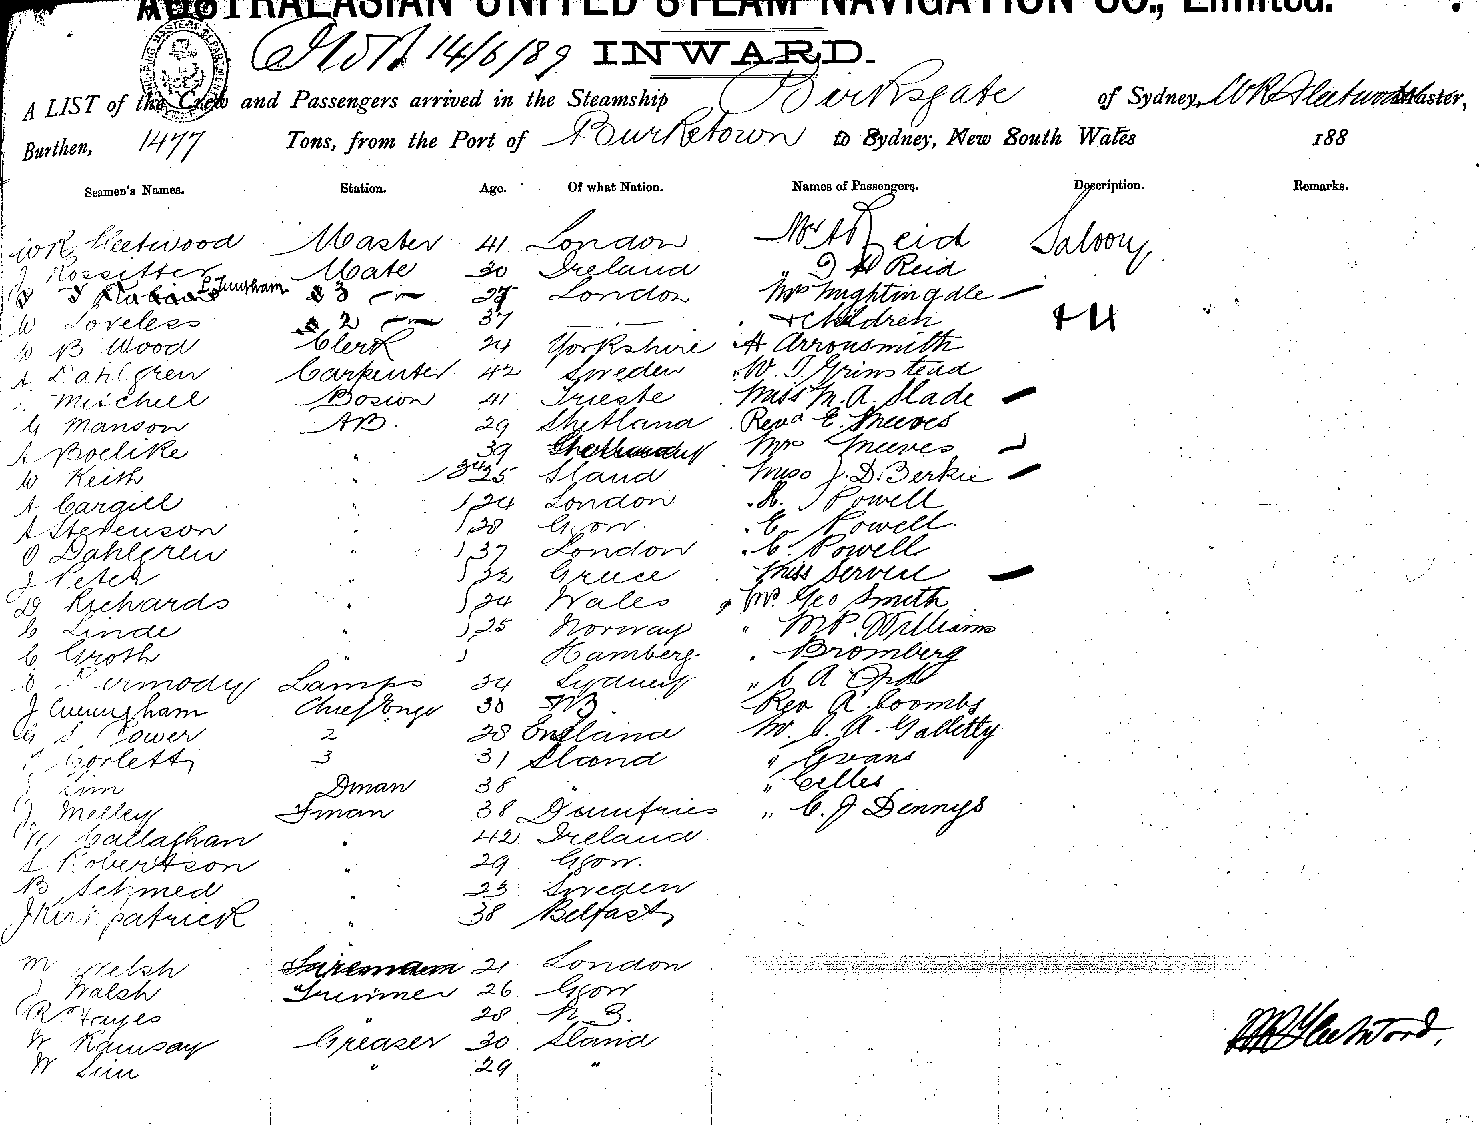 AUSTRALASIAN UNITED STEAM NAVIGATION CO., Limited.
14/6/89 INWARD.
A LIST of the Crew and Passengers arrived in the Steamship Birksgate of Sydney, WR Fleetwood Master,
Burthen, 1477 Tons, from the Port of Burketown to Sydney, New South Wales 188
Seamen's Names. Station. Age. Of what Nation. Names of Passengers. Description. Remarks.
WR Fleetwood Master 41 London Reid Saloon
J Rossiter Mate 30 Ireland " Reid
3 London Mrs Nightingale
W Loveless 2 37 + Children + 4
B Wood Clerk 24 Yorkshire A Arrowsmith
A Dahlgren Carpenter 42 Sweden W. J. Grinstead
Mischell Bosun 41 Trieste Miss M. A. Slade
G Manson AB. 29 Shetland Revd E. Greeves
A Boelike " 39 Mrs Greeves
W Keith " 25 Sland Miss J. D. Berkie
A Cargill " 24 London Powell
A Stevenson " 28 Ggow. E. Powell
O Dahlgren " 37 London C. Powell
J Peter " 32 Greece Miss Servere
D Richards " 24 Wales Mr. Geo Smith
C Linde " 25 Norway " Williams
C Groth " Hamberg " Bromberg
Dermody Lamps 34 Sydney " C A
J Cunningham Chief Engr 30 NB. Rev A Coombs
G S Power 2 28 England W. J. A. Galletty
Corlett 3 31 Sland " Evans
Sim Dman 38 " " Celles
J. Melley Fman 38 Dumfries " C. J Dennys
Callaghan " 42 Ireland
Robertson " 29 Ggow.
B Schmed " 23 Sweden
J Kirkpatrick " 38 Belfast
M Welsh Fireman 21 London
J Walsh Trimmer 26 Ggow
R. Hayes " 28 N. B.
W Ramsay Greaser 30 Sland WR Fleetwood.
W Sim " 29 "